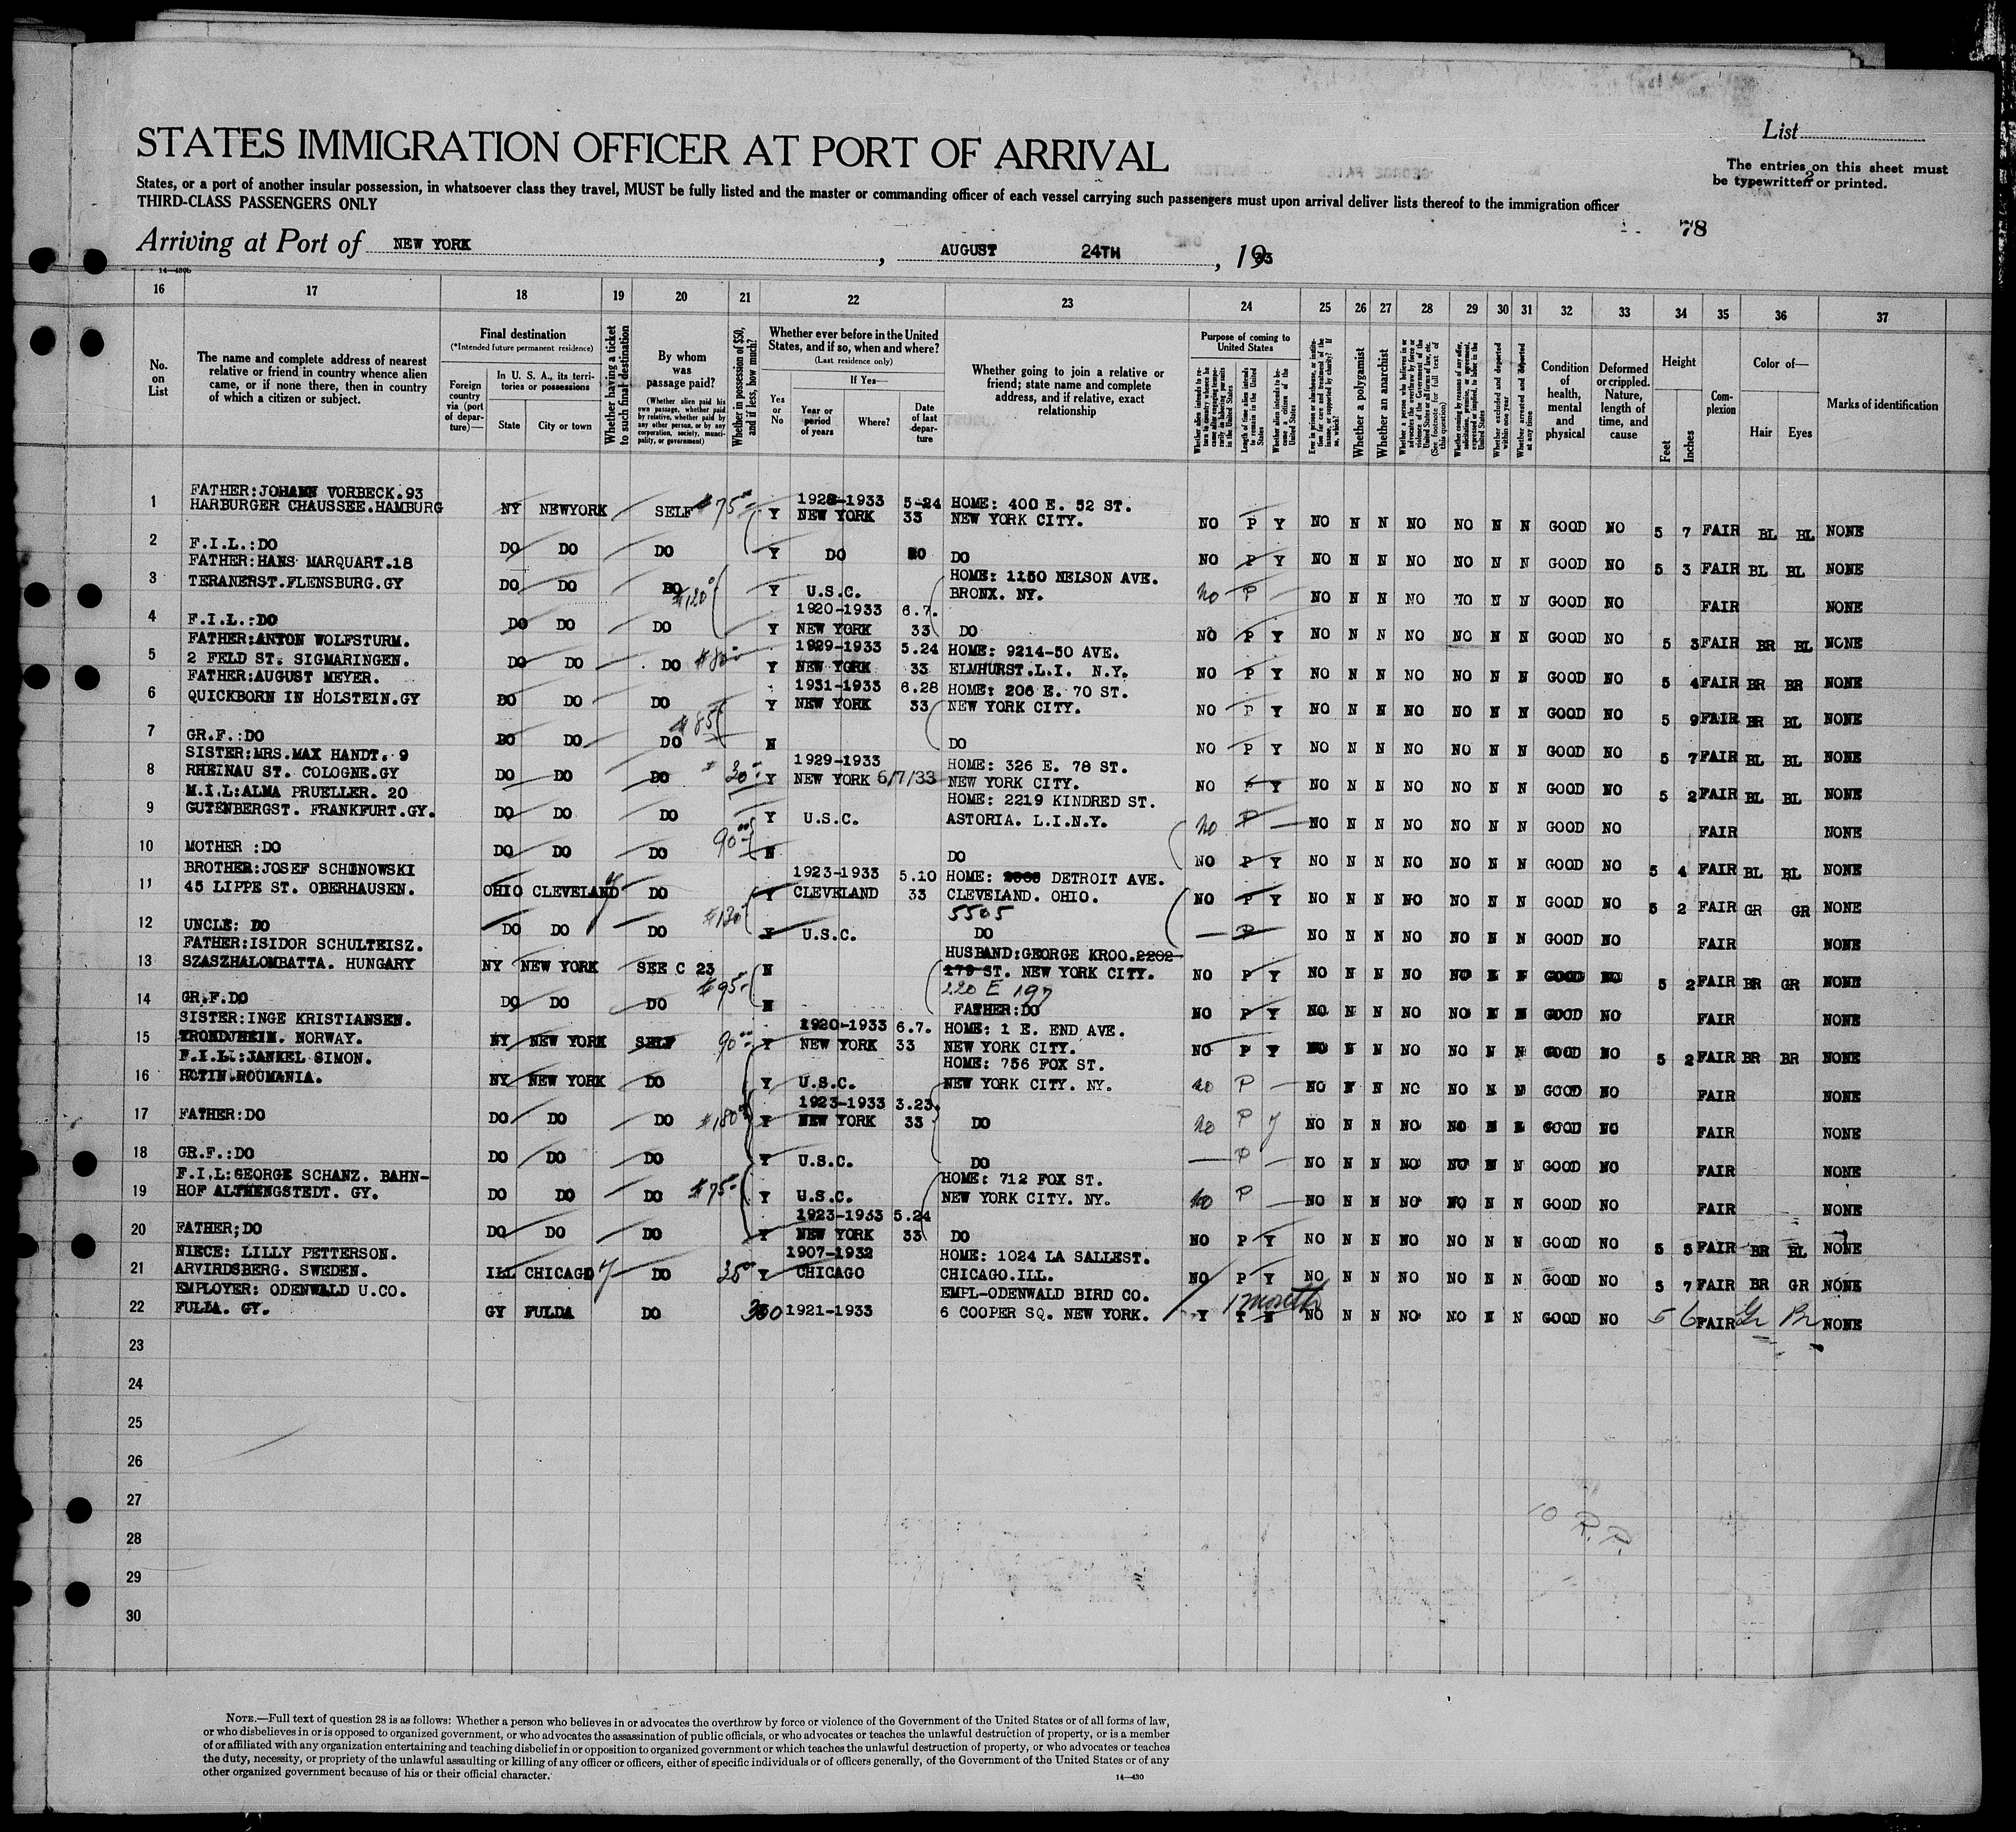 STATES IMMIGRATION OFFICER AT PORT OF ARRIVAL
List
The entries on this sheet must
be typewritten or printed.
States, or a port of another insular possession, in whatsoever class they travel, MUST be fully listed and the master or commanding officer of each vessel carrying such passengers must upon arrival deliver lists thereof to the immigration officer
THIRD-CLASS PASSENGERS ONLY
78
Arriving at Port of NEW YORK, AUGUST 24TH, 19 33
14—430b
16 17 18 19 20 21 22 23 24 25 26 27 28 29 30 31 32 33 34 35 36 37
No. on List
The name and complete address of nearest relative or friend in country whence alien came, or if none there, then in country of which a citizen or subject.
Final destination
(*Intended future permanent residence)
Foreign country via (port of departure)—
In U. S. A., its territories or possessions
State
City or town
Whether having a ticket to such final destination
By whom was passage paid?
(Whether alien paid his own passage, whether paid by relative, whether paid by any other person, or by any corporation, society, municipality, or government)
Whether in possession of $50, and if less, how much?
Whether ever before in the United States, and if so, when and where?
(Last residence only)
Yes or No
If Yes—
Year or period of years
Where?
Date of last departure
Whether going to join a relative or friend; state name and complete address, and if relative, exact relationship
Purpose of coming to United States
Length of time alien intends to remain in the United States
Whether alien intends to become a citizen of the United States
Whether a polygamist
Whether an anarchist
Whether excluded and deported within one year
Whether arrested and deported at any time
Condition of health, mental and physical
Deformed or crippled. Nature, length of time, and cause
Height
Feet
Inches
Complexion
Color of—
Hair
Eyes
Marks of identification
1 FATHER:JOHANN VORBECK.93
HARBURGER CHAUSSEE.HAMBURG NY NEWYORK SELF $75 Y 1928-1933 NEW YORK 5-24 33 HOME: 400 E. 52 ST. NEW YORK CITY. NO P Y NO N N NO NO N N GOOD NO 5 7 FAIR BL BL NONE
2 F.I.L.:DO DO DO DO Y DO DO DO NO P Y NO N N NO NO N N GOOD NO 5 3 FAIR BL BL NONE
3 FATHER:HANS MARQUART.18
TERANERST.FLENSBURG.GY DO DO DO $120 Y U.S.C. HOME: 1150 NELSON AVE. BRONX. NY. no P — NO N N NO NO N N GOOD NO FAIR NONE
4 F.I.L.:DO DO DO DO Y 1920-1933 NEW YORK 6.7. 33 DO NO P Y NO N N NO NO N N GOOD NO 5 3 FAIR BR BL NONE
5 FATHER:ANTON WOLFSTURM.
2 FELD ST. SIGMARINGEN. DO DO DO $80 Y 1929-1933 NEW YORK 5.24 33 HOME: 9214-50 AVE. ELMHURST.L.I. N.Y. NO P Y NO N N NO NO N N GOOD NO 5 4 FAIR BR BR NONE
6 FATHER:AUGUST MEYER.
QUICKBORN IN HOLSTEIN.GY DO DO DO Y 1931-1933 NEW YORK 6.28 33 HOME: 206 E. 70 ST. NEW YORK CITY. NO P Y NO N N NO NO N N GOOD NO 5 9 FAIR BR BL NONE
7 GR.F.:DO DO DO DO $85 N DO NO P Y NO N N NO NO N N GOOD NO 5 7 FAIR BL BL NONE
8 SISTER:MRS.MAX HANDT. 9
RHEINAU ST. COLOGNE.GY DO DO DO $30 Y 1929-1933 NEW YORK 6/7/33 HOME: 326 E. 78 ST. NEW YORK CITY. NO P Y NO N N NO NO N N GOOD NO 5 2 FAIR BL BL NONE
9 M.I.L:ALMA PRUELLER. 20
GUTENBERGST. FRANKFURT.GY. DO DO DO Y U.S.C. HOME: 2219 KINDRED ST. ASTORIA. L.I.N.Y. no P — NO N N NO NO N N GOOD NO FAIR NONE
10 MOTHER :DO DO DO DO 90 N DO NO P Y NO N N NO NO N N GOOD NO 5 4 FAIR BL BL NONE
11 BROTHER:JOSEF SCHONOWSKI
45 LIPPE ST. OBERHAUSEN. OHIO CLEVELAND y DO Y 1923-1933 CLEVELAND 5.10 33 HOME: DETROIT AVE. CLEVELAND. OHIO. 5505 NO P Y NO N N NO NO N N GOOD NO 5 2 FAIR GR GR NONE
12 UNCLE: DO DO DO DO $130 Y U.S.C. DO — P NO N N NO NO N N GOOD NO FAIR NONE
13 FATHER:ISIDOR SCHULTEISZ.
SZASZHALOMBATTA. HUNGARY NY NEW YORK SEE C 23 N HUSBAND:GEORGE KROO.2202 179 ST. NEW YORK CITY. 220 E 197 NO P Y NO N N NO NO N N GOOD NO 5 2 FAIR BR GR NONE
14 GR.F.DO DO DO DO $95 N FATHER:DO NO P Y NO N N NO NO N N GOOD NO FAIR NONE
15 SISTER:INGE KRISTIANSEN.
TRONDJHEIM. NORWAY. NY NEW YORK SELF 90 Y 1920-1933 NEW YORK 6.7. 33 HOME: 1 E. END AVE. NEW YORK CITY. NO P Y NO N N NO NO N N GOOD NO 5 2 FAIR BR BR NONE
16 F.I.L.:JANKEL SIMON.
HOTIN.ROUMANIA. NY NEW YORK DO Y U.S.C. HOME: 756 FOX ST. NEW YORK CITY. NY. no P — NO N N NO NO N N GOOD NO FAIR NONE
17 FATHER:DO DO DO DO $180 Y 1923-1933 NEW YORK 3.23. 33 DO no P y NO N N NO NO N N GOOD NO FAIR NONE
18 GR.F.:DO DO DO DO Y U.S.C. DO — P — NO N N NO NO N N GOOD NO FAIR NONE
19 F.I.L:GEORGE SCHANZ. BAHN-
HOF ALTHENGSTEDT. GY. DO DO DO $75 Y U.S.C. HOME: 712 FOX ST. NEW YORK CITY. NY. no P — NO N N NO NO N N GOOD NO FAIR NONE
20 FATHER;DO DO DO DO Y 1923-1933 NEW YORK 5.24 33 DO NO P Y NO N N NO NO N N GOOD NO 5 5 FAIR BR BL NONE
21 NIECE: LILLY PETTERSON.
ARVIRDSBERG. SWEDEN. ILL CHICAGO y DO 25 Y 1907-1932 CHICAGO HOME: 1024 LA SALLEST. CHICAGO.ILL. NO P Y NO N N NO NO N N GOOD NO 5 7 FAIR BR GR NONE
22 EMPLOYER: ODENWALD U.CO.
FULDA. GY. GY FULDA DO 1921-1933 EMPL-ODENWALD BIRD CO. 6 COOPER SQ. NEW YORK. Y 1 month NO N N NO NO N N GOOD NO 5 6 FAIR Gr Br NONE
23
24
25
26
27
28
29
30
10 R.P.
NOTE.—Full text of question 28 is as follows: Whether a person who believes in or advocates the overthrow by force or violence of the Government of the United States or of all forms of law,
or who disbelieves in or is opposed to organized government, or who advocates the assassination of public officials, or who advocates or teaches the unlawful destruction of property, or is a member
of or affiliated with any organization entertaining and teaching disbelief in or opposition to organized government or which teaches the unlawful destruction of property, or who advocates or teaches
the duty, necessity, or propriety of the unlawful assaulting or killing of any officer or officers, either of specific individuals or of officers generally, of the Government of the United States or of any
other organized government because of his or their official character.
14—430